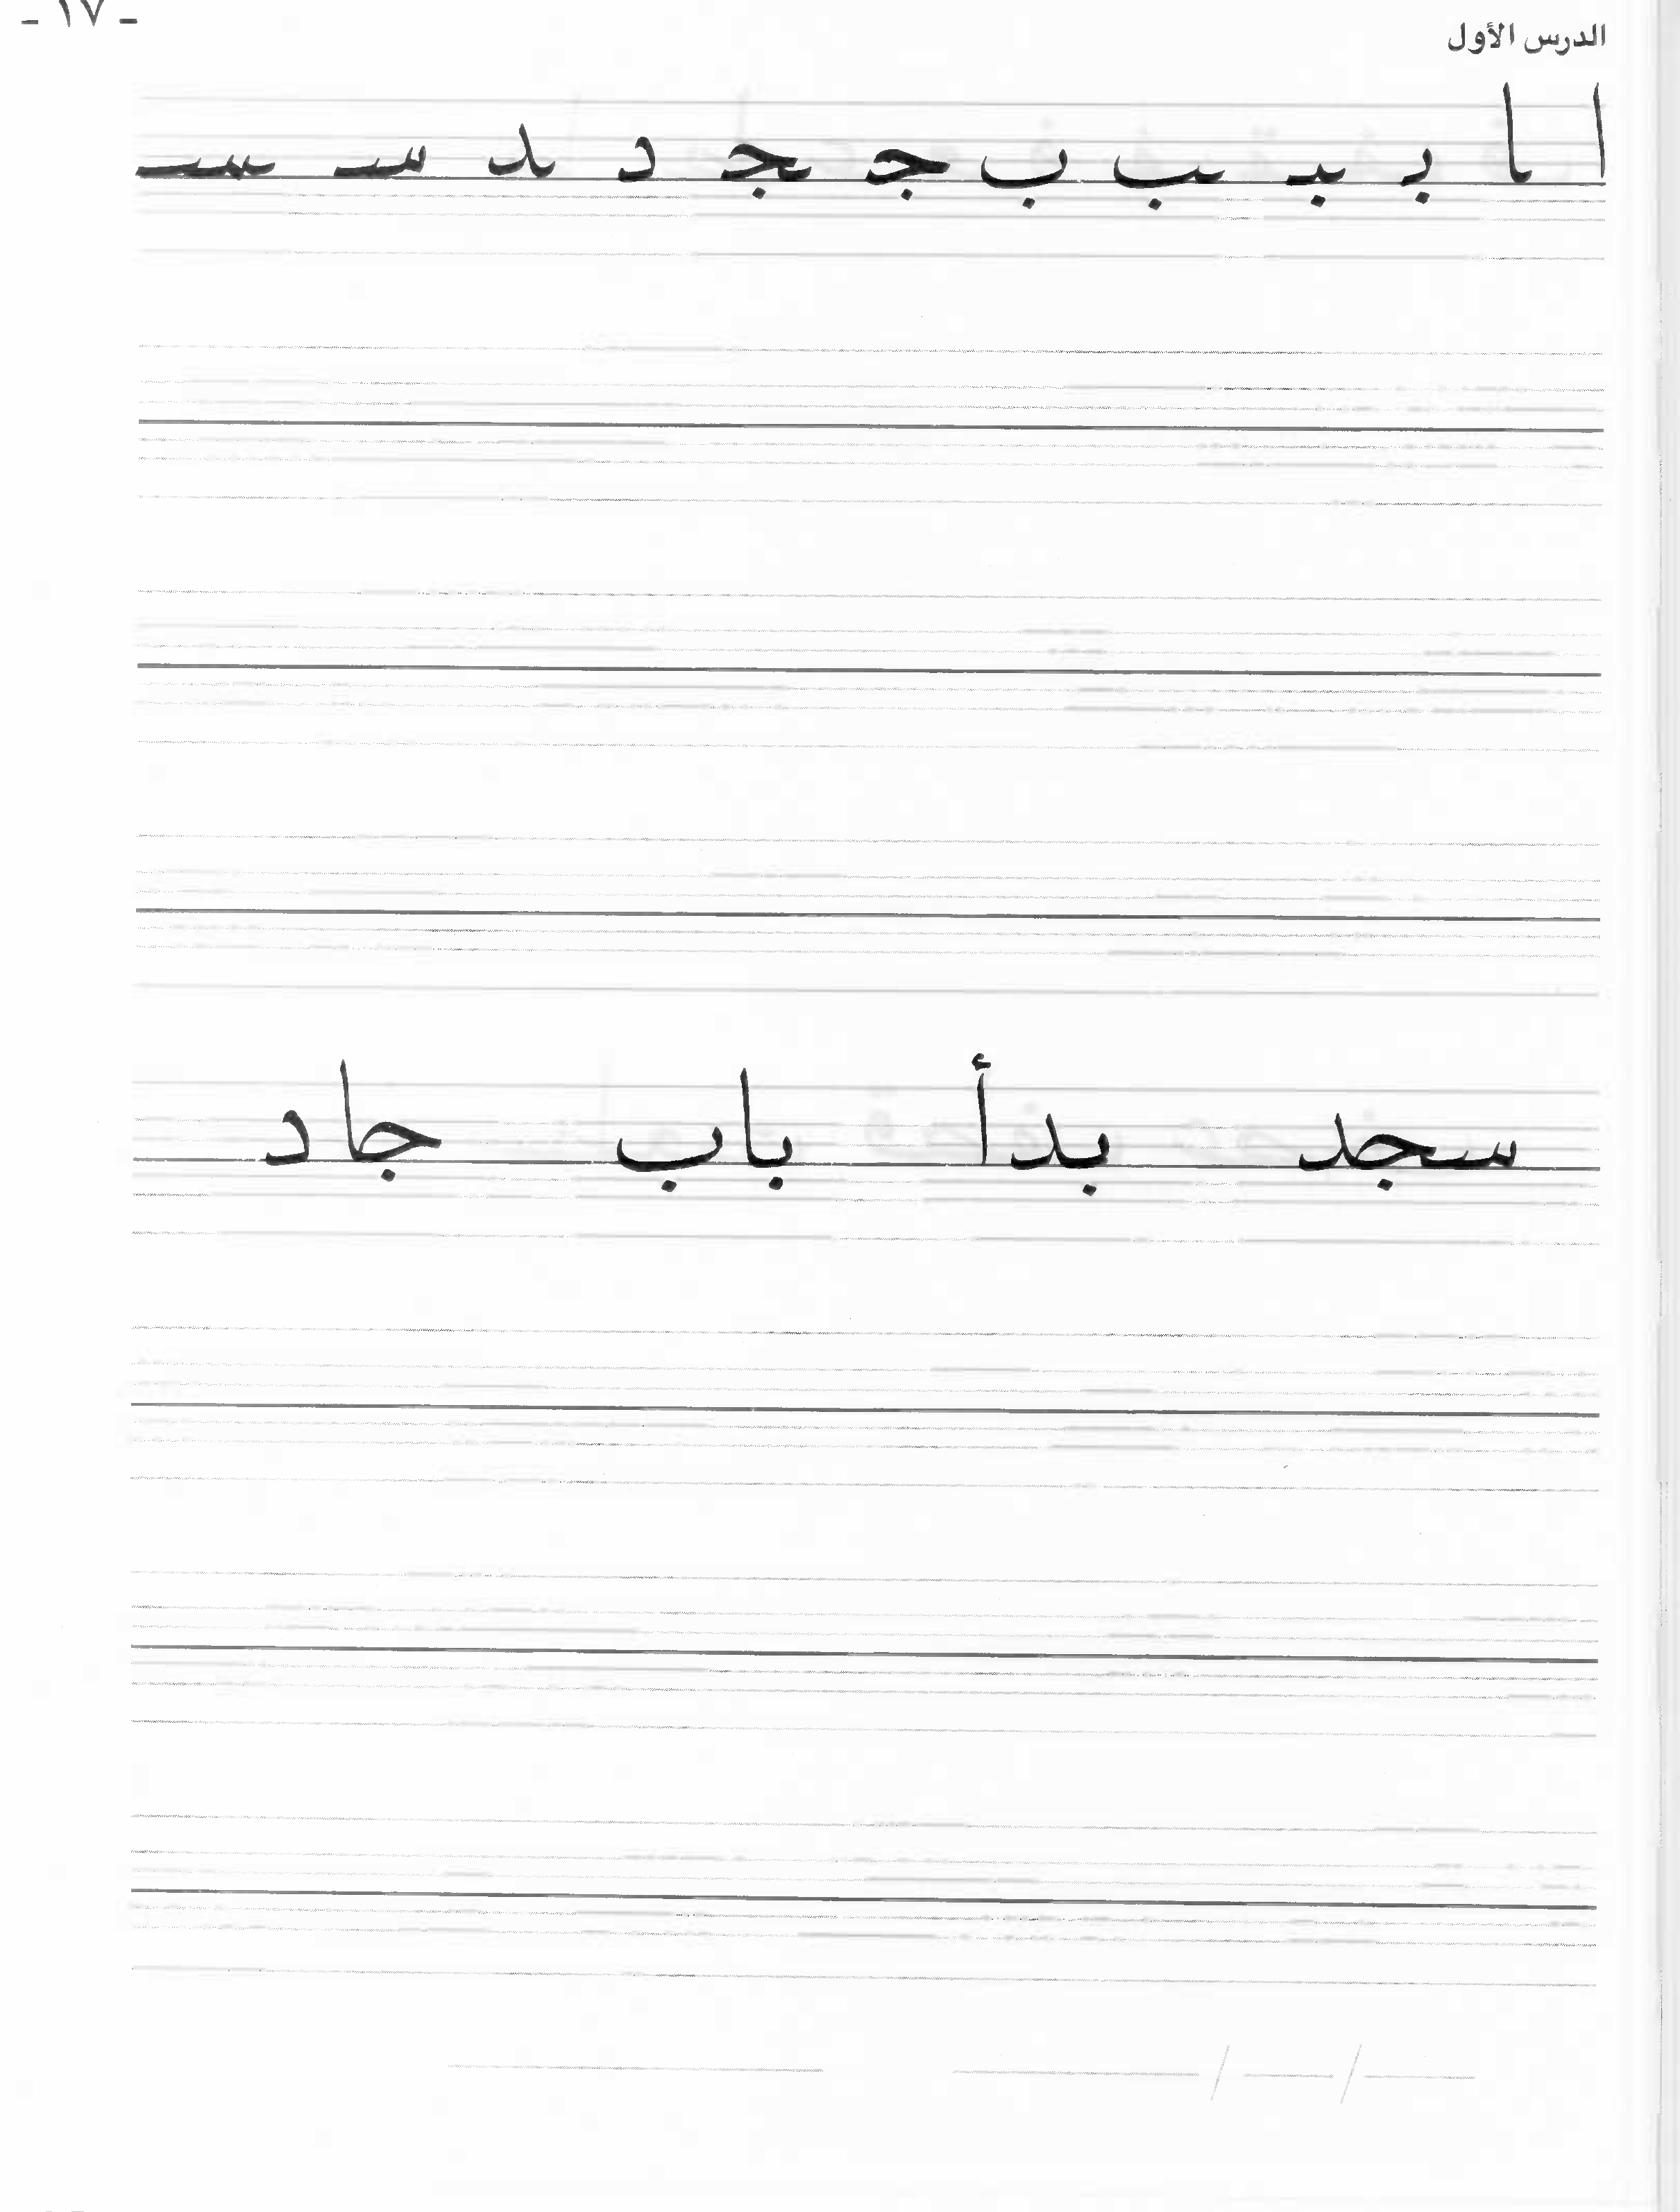 - ١٧ -
الدرس الأول
ا ـا بـ ـبـ ـب ب جـ ـجـ د ـد سـ ـسـ
سجد بدأ باب جاد